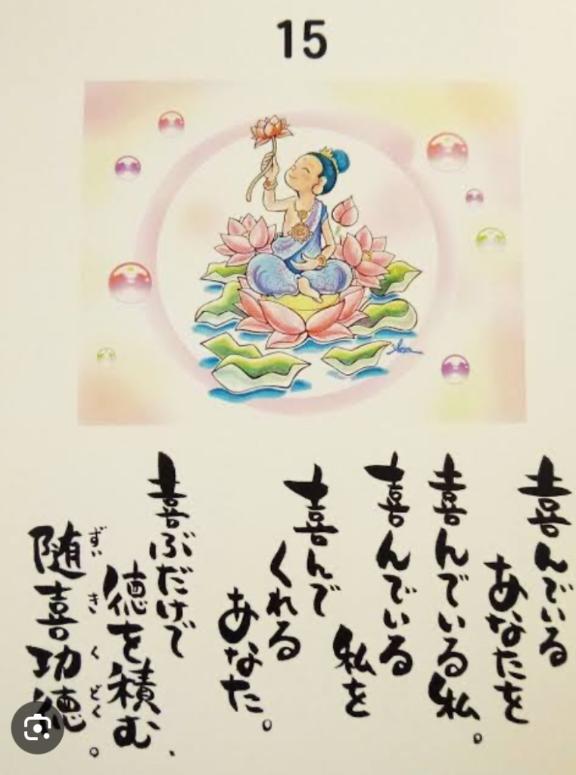 15
喜んでいる
あなたを
喜んでいる私。
喜んでいる
私を
喜んで
くれる
あなた。
喜ぶだけで
徳を積む、
ずいきくどく
随喜功徳。